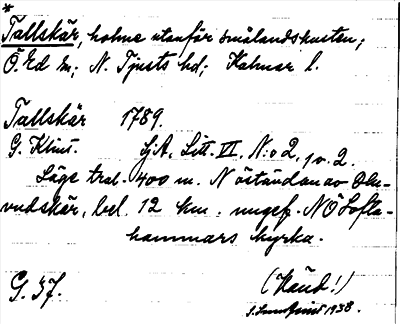 *
Tallskär, holme utanför smålandskusten;
Ö. Ed sn; N. Tjusts hd; Kalmar l.
Tallskär 1789
G. Klint. Sj.A. Litt. VI, N:o 2, 1 o. 2.
Läge tral. 400 m. N öständan av
vudskär, bel. 12 km. ungef. NÖ Lofta-
hammars kyrka.
G. 37. (Känd!)
1938.